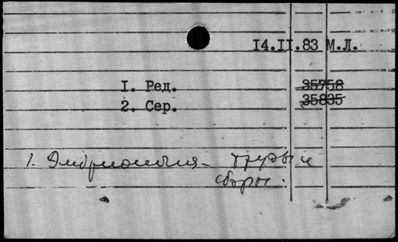 14.II.83 М.Л.
1. Ред. 35758
2. Сер. 35835
1. Эмбриология - труды и
сборн.